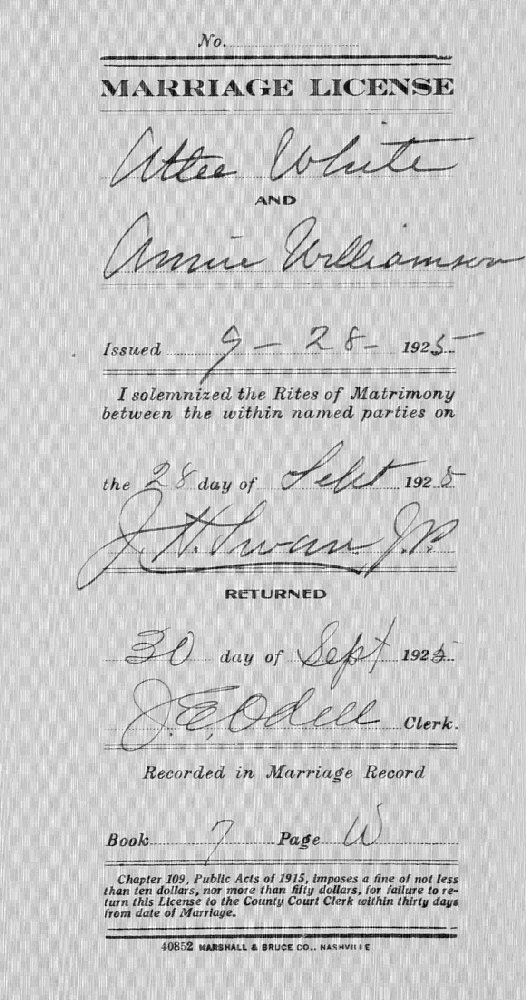 No.
MARRIAGE LICENSE
Attee White
AND
Annie Williamson
Issued 9 - 28 - 1925
I solemnized the Rites of Matrimony
between the within named parties on
the 28 day of Sept 1925
J. H. Swan J.P.
RETURNED
30 day of Sept 1925
J. E. Odell Clerk.
Recorded in Marriage Record
Book 7 Page W
Chapter 109, Public Acts of 1915, imposes a fine of not less
than ten dollars, nor more than fifty dollars, for failure to re-
turn this License to the County Court Clerk within thirty days
from date of Marriage.
40852 MARSHALL & BRUCE CO., NASHVILLE